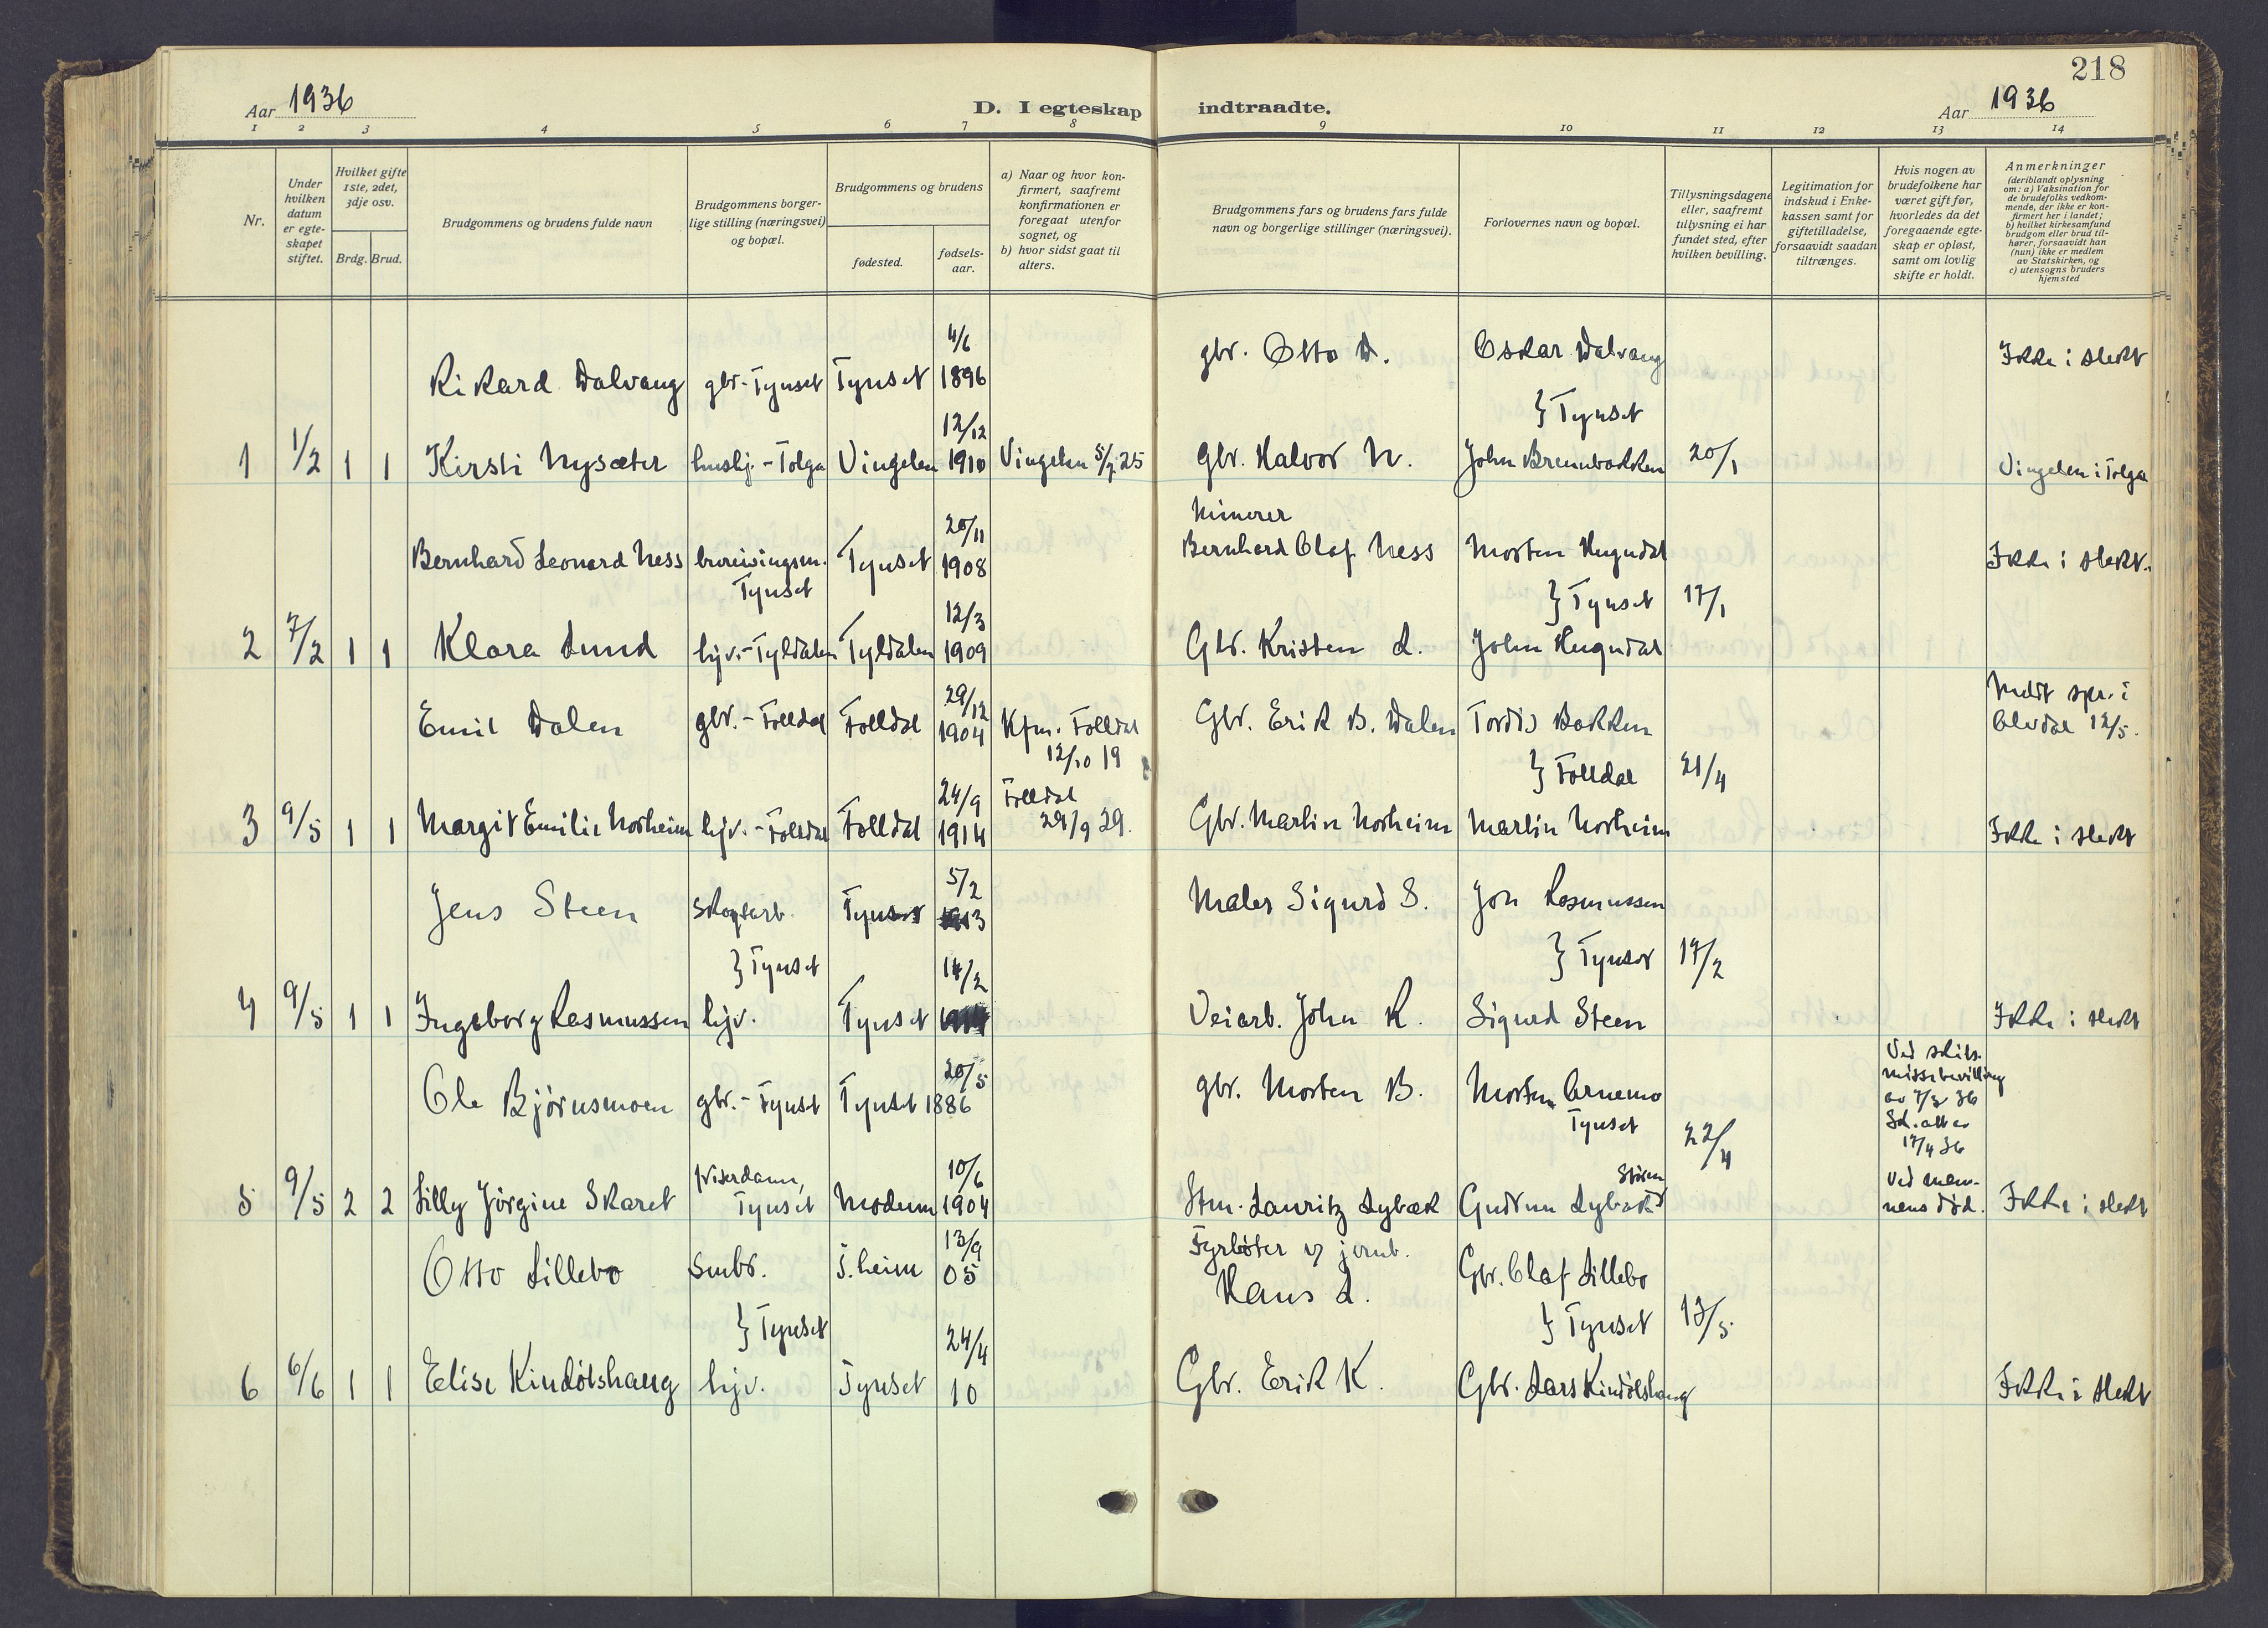 218
Aar 1936
D. I egteskap indtraadte.
Aar 1936
1 2 3 4 5 6 7 8 9 10 11 12 13 14
Nr.
Under
hvilken
datum
er egte-
skapet
stiftet.
Hvilket gifte
1ste, 2det,
3dje osv.
Brdg. Brud.
Brudgommens og brudens fulde navn
Brudgommens borger-
lige stilling (næringsvei)
og bopæl.
Brudgommens og brudens
fødested.
fødsels-
aar.
a) Naar og hvor kon-
firmert, saafremt
konfirmationen er
foregaat utenfor
sognet, og
b) hvor sidst gaat til
alters.
Brudgommens fars og brudens fars fulde
navn og borgerlige stillinger (næringsvei).
Forlovernes navn og bopæl.
Tillysningsdagene
eller, saafremt
tillysning ei har
fundet sted, efter
hvilken bevilling.
Legitimation for
indskud i Enke-
kassen samt for
giftetilladelse,
forsaavidt saadan
tiltrænges.
Hvis nogen av
brudefolkene har
været gift før,
hvorledes da det
foregaaende egte-
skap er opløst,
samt om lovlig
skifte er holdt.
Anmerkninger
(deriblandt oplysning
om: a) Vaksination for
de brudefolks vedkom-
mende, der ikke er kon-
firmert her i landet;
b) hvilket kirkesamfund
brudgom eller brud til-
hører, forsaavidt han
(hun) ikke er medlem
av Statskirken, og
c) utensogns bruders
hjemsted
4/6
Rikard Dalvang gbr - Tynset Tynset 1896 gbr. Otto D. Oskar Dalvang Ikke i slekt
12/12
} Tynset
1 1/2 1 1 Kirsti Nysæter hushj. - Tolga Vingelen 1910 Vingelen 5/7 25 Gbr. Halvor N. John Brennbakken 20/1 Vingelen i Tolga
20/11
Minerer
Bernhard Leonard Ness bureisingsm. Tynset 1908 Bernhard Olaf Ness Morten Hugndal Ikke i slekt.
Tynset
12/3
} Tynset 17/1
2 7/2 1 1 Klara Lund hjv. - Tyldalen Tyldalen 1909 Gbr. Kristen L. John Hugndal
29/12
Meldt spr. i
Emil Dalen gbr. - Folldal Folldal 1904 Kfm. Folldal Gbr. Erik B. Dalen Tordis Bakken Alvdal 12/5.
12/10 19
} Folldal 21/4
24/9 Folldal
3 9/5 1 1 Margit Emilie Norheim hjv. - Folldal Folldal 1914 29/9 29. Gbr. Martin Norheim Martin Norheim Ikke i slekt
5/2
Jens Steen skogsarb. Tynset 1913 Maler Sigurd S. Jon Rasmussen
} Tynset
14/2
} Tynset 17/2
4 9/5 1 1 Ingeborg Rasmussen hjv. Tynset Veiarb. John R. Sigurd Steen Ikke i slekt
20/5
Ved skils-
missebevilling
Ole Björnsmoen gbr. - Tynset Tynset 1886 gbr. Morten B. Morten Arnemo
av 7/3 36
Tynset 22/4
17/4 36
10/6
frisørdame, Støren
Ved man-
5 9/5 2 2 Lilly Jörgine Skaret Tynset Modum 1904 Stm. Lauritz Lybæk Gudrun Lybæk nens død. Ikke i slekt
13/9
Fyrbøter v/ jernb.
Otto Lillebo Smbr. T.heim 05 Hans L. Gbr. Olaf Lillebo
} Tynset
24/4
} Tynset 13/5.
6 6/6 1 1 Elise Kindölshaug hjv. Tynset 10 Gbr. Erik K. Gbr. Lars Kindölshaug Ikke i slekt